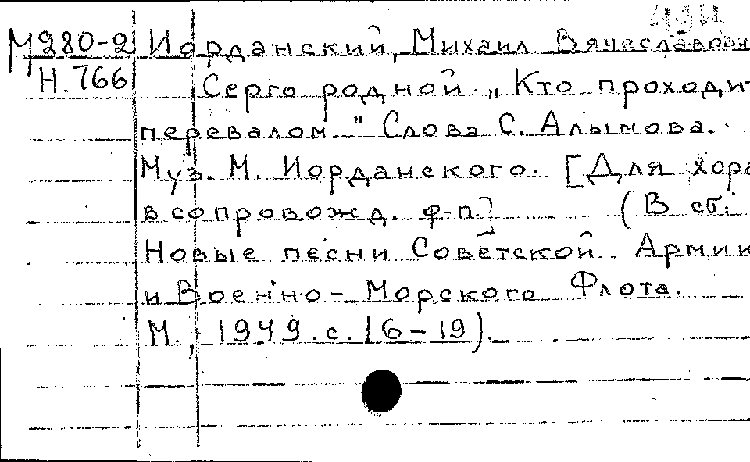 М280-2 Иорданский, Михаил Вячеславович
Н.766 Серго родной. „Кто проходит
перевалом..." Слова С. Алымова.
Муз. М. Иорданского. [Для хора
в сопровожд. ф-п.] (В сб.:
Новые песни Советской Армии
и Военно-Морского Флота.
М., 1949. с. 16-19).